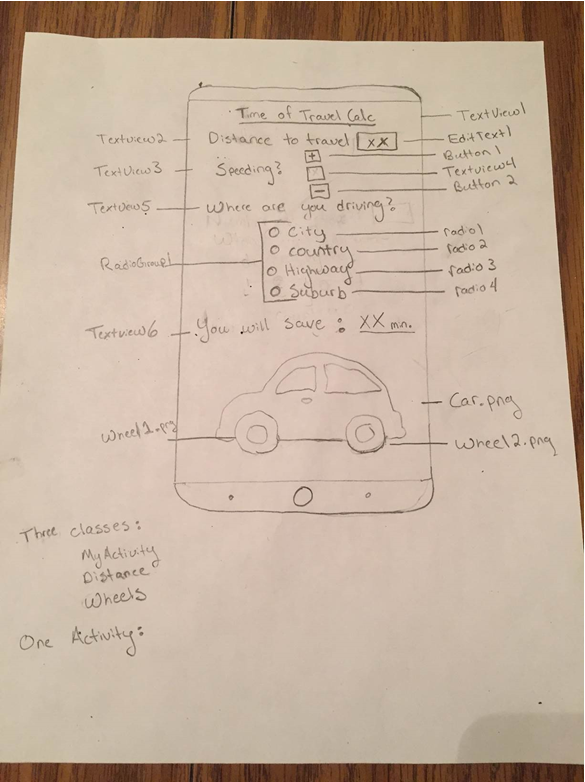 Time of Travel Calc
TextView1
Textview2
Distance to travel
XX
EditText1
+
Button 1
TextView3
Speeding?
Textview4
−
Button 2
TextView5
Where are you driving?
RadioGroup1
City
radio1
country
radio 2
Highway
radio 3
Suburb
radio 4
Textview6
You will save : XX min.
Car.png
Wheel1.png
Wheel2.png
Three classes:
MyActivity
Distance
Wheels
One Activity: